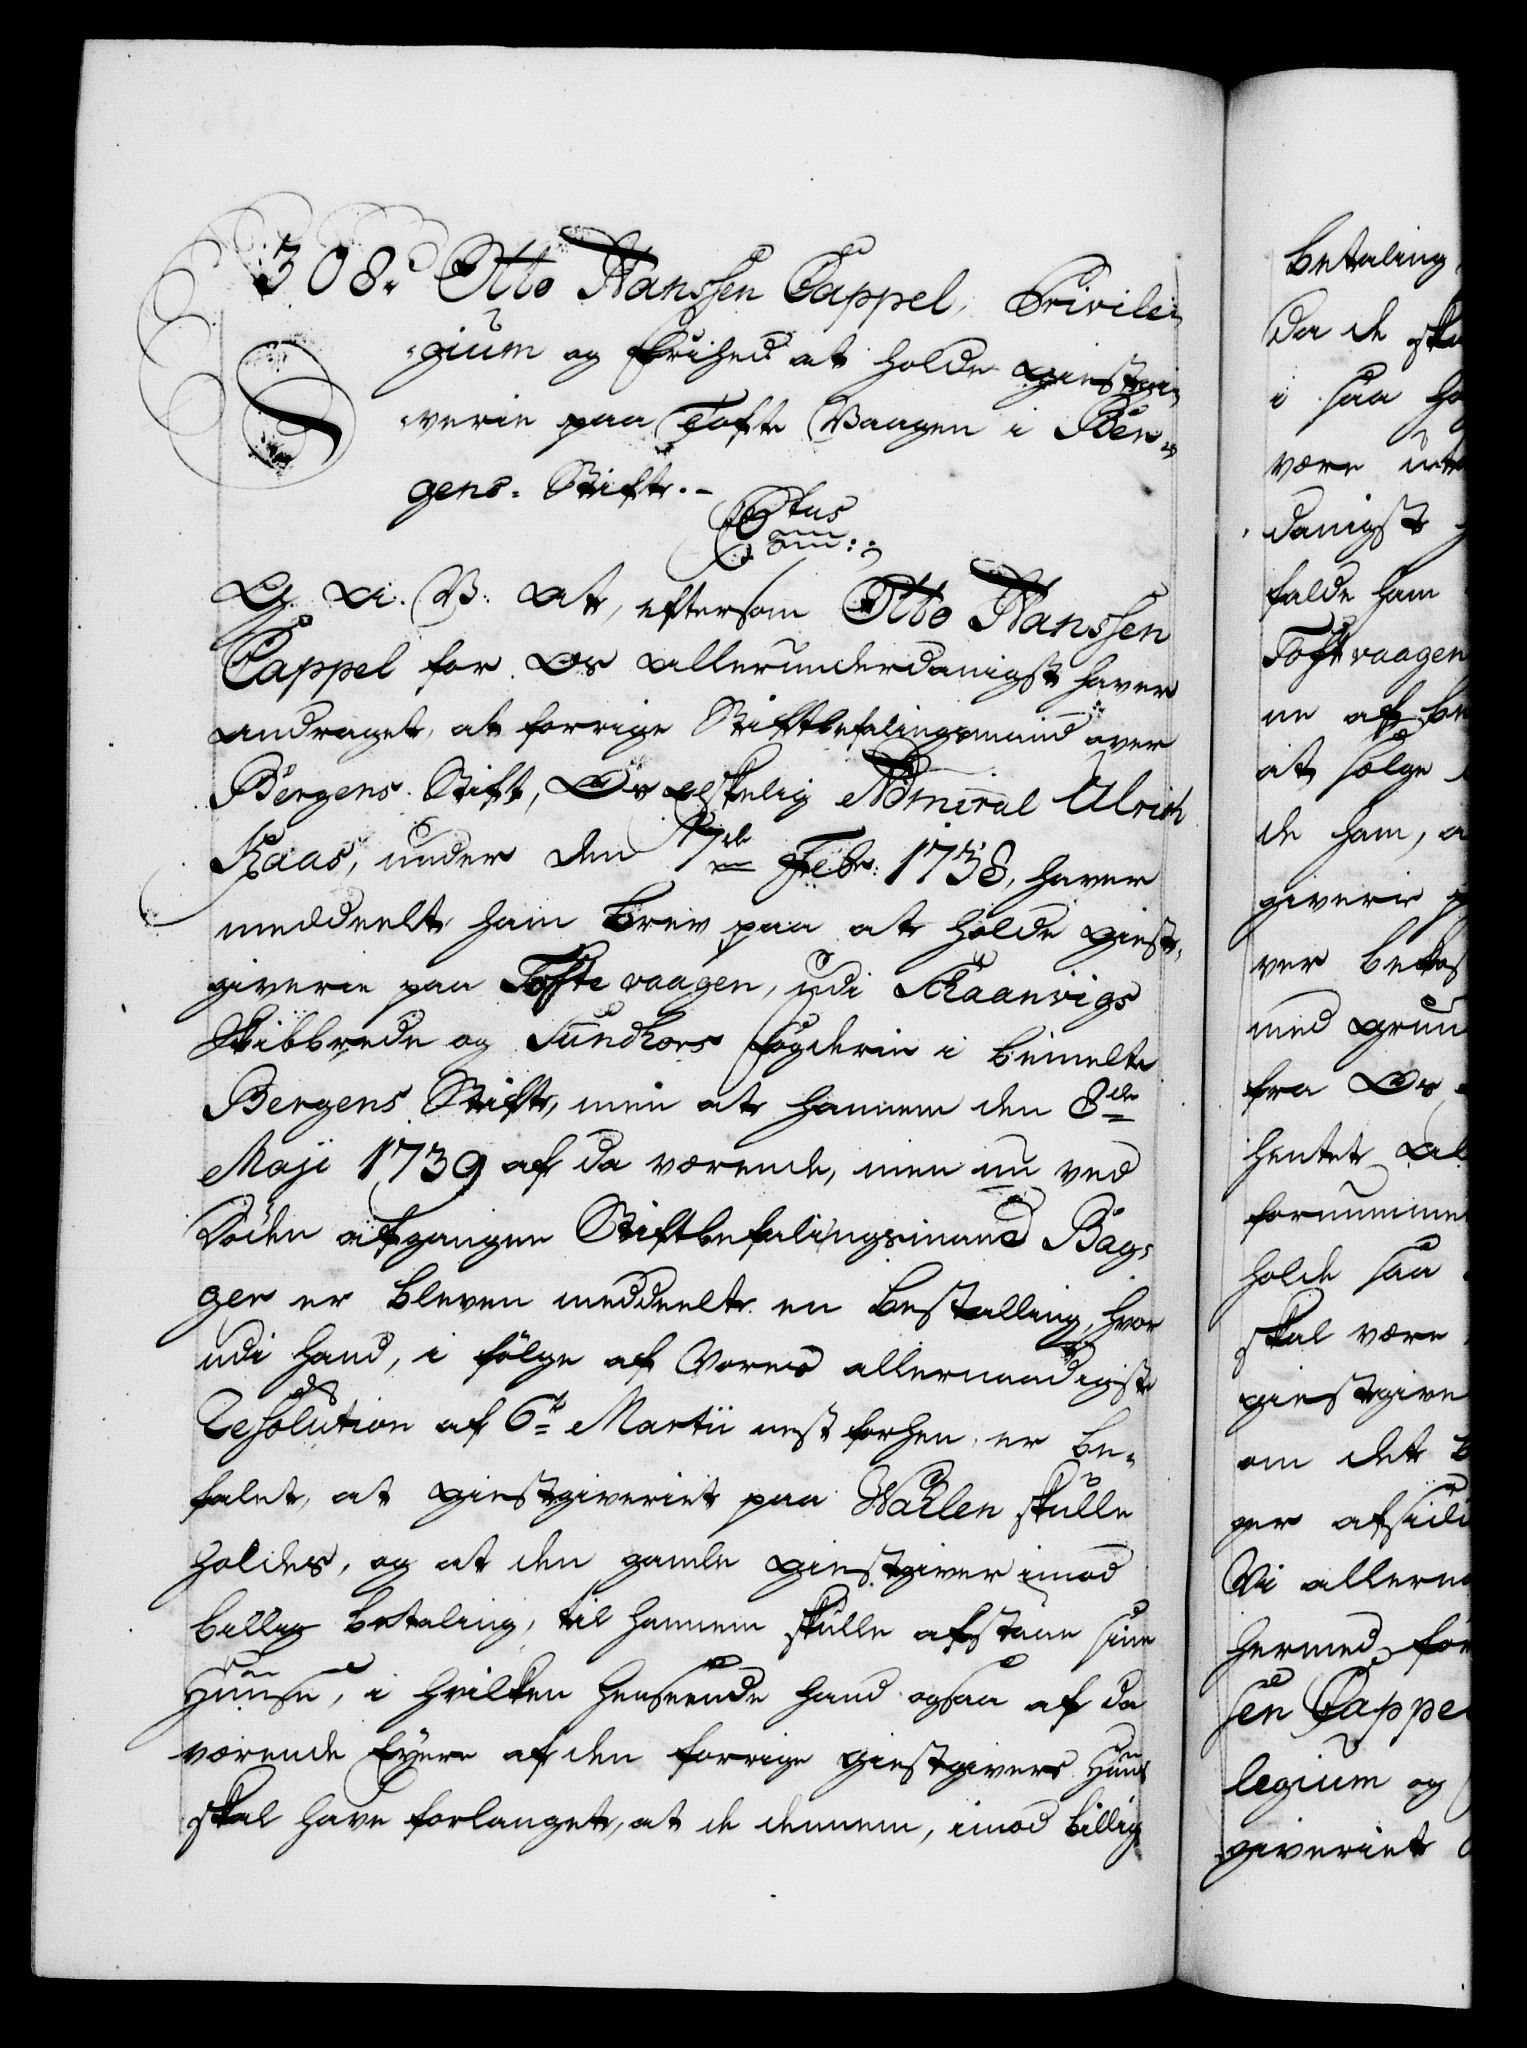 308. Otto Hanssen Cappel, Privile-
gium og Frihed at holde giestgi-
verie paa Tofte Vaagen i Ber-
gens Stift.-
Ctus
Com:
G. A. V: At, eftersom Otto Hanssen
Cappel for Os allerunderdanigst haver
andraget, at forrige Stiftbefalingsmand over
Bergens Stift, Os elskelig Admiral Ulrich
Kaas, under den 17de Febr: 1738, haver
meddeelt ham brev paa at holde giest-
giverie paa Tofte vaagen, udi Skaanvigs
Skibbrede og Sundhors fogderie i bemelte
Bergens Stift, men at hannem den 8de
Maji 1739 af da værende, men nu ved
Døden afgangen Stiftbefalingsmand Bag-
ger er bleven meddeelt en bestalling, hvor
udi hand, i følge af Vores allernaadigste
Resolution af 6te Martii nest forhen, er be-
falet, at giestgiveriet paa Wahlen skulle
holdes, og at den gamle giestgiver imod
billig betaling, til hannem skulle afstaae sine
Huuse, i hvilken henseende hand ogsaa af da
værende Eyere af den forrige giestgivers Huus
skal have forlanget, at de dennem, imod billig
betaling
da de ska
i saa ha
være
danigst
falde ham
Tofte vaagen
ne af be
at følge
de ham, a
giverie p
ver bekos
med grun
fra Os
hentet al
fornumme
holde saa
skal være
giestgive
om det b
ger afside
Vi allerna
hermed for
sen Cappe
legium og
giveriet